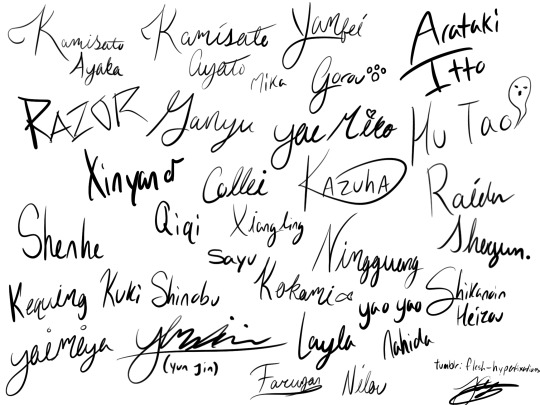 Kamisato
Ayaka
Kamisato
Ayato
Mika
Yanfei
Gorou
Arataki
Itto
RAZOR
Ganyu
yae Miko
Hu Tao
Xinyan
Collei
KAZUHA
Raiden
Shogun.
Shenhe
Qiqi
Xiangling
Sayu
Ningguang
Keqing
Kuki Shinobu
Kokomi
yao yao
Shikanoin
Heizou
yoimiya
(Yun Jin)
Layla
Nahida
Faruzan
Nilou